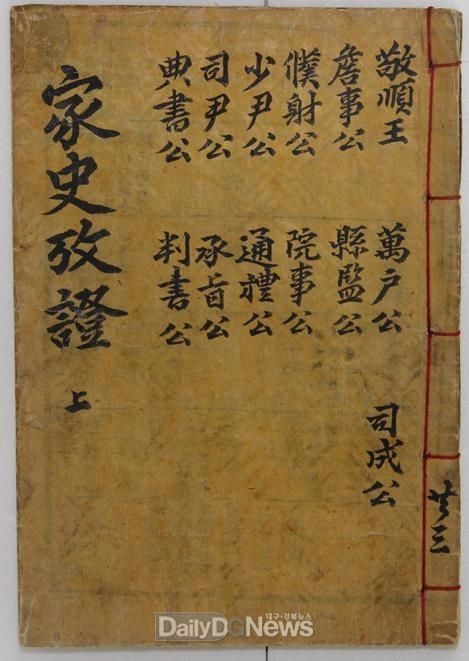 共三
敬順王
詹事公
僕射公
少尹公
司尹公
典書公
萬戶公
縣監公
院事公
通禮公
承旨公
判書公
司成公
家史攷證 上
대구·경북뉴스
DailyDGNews